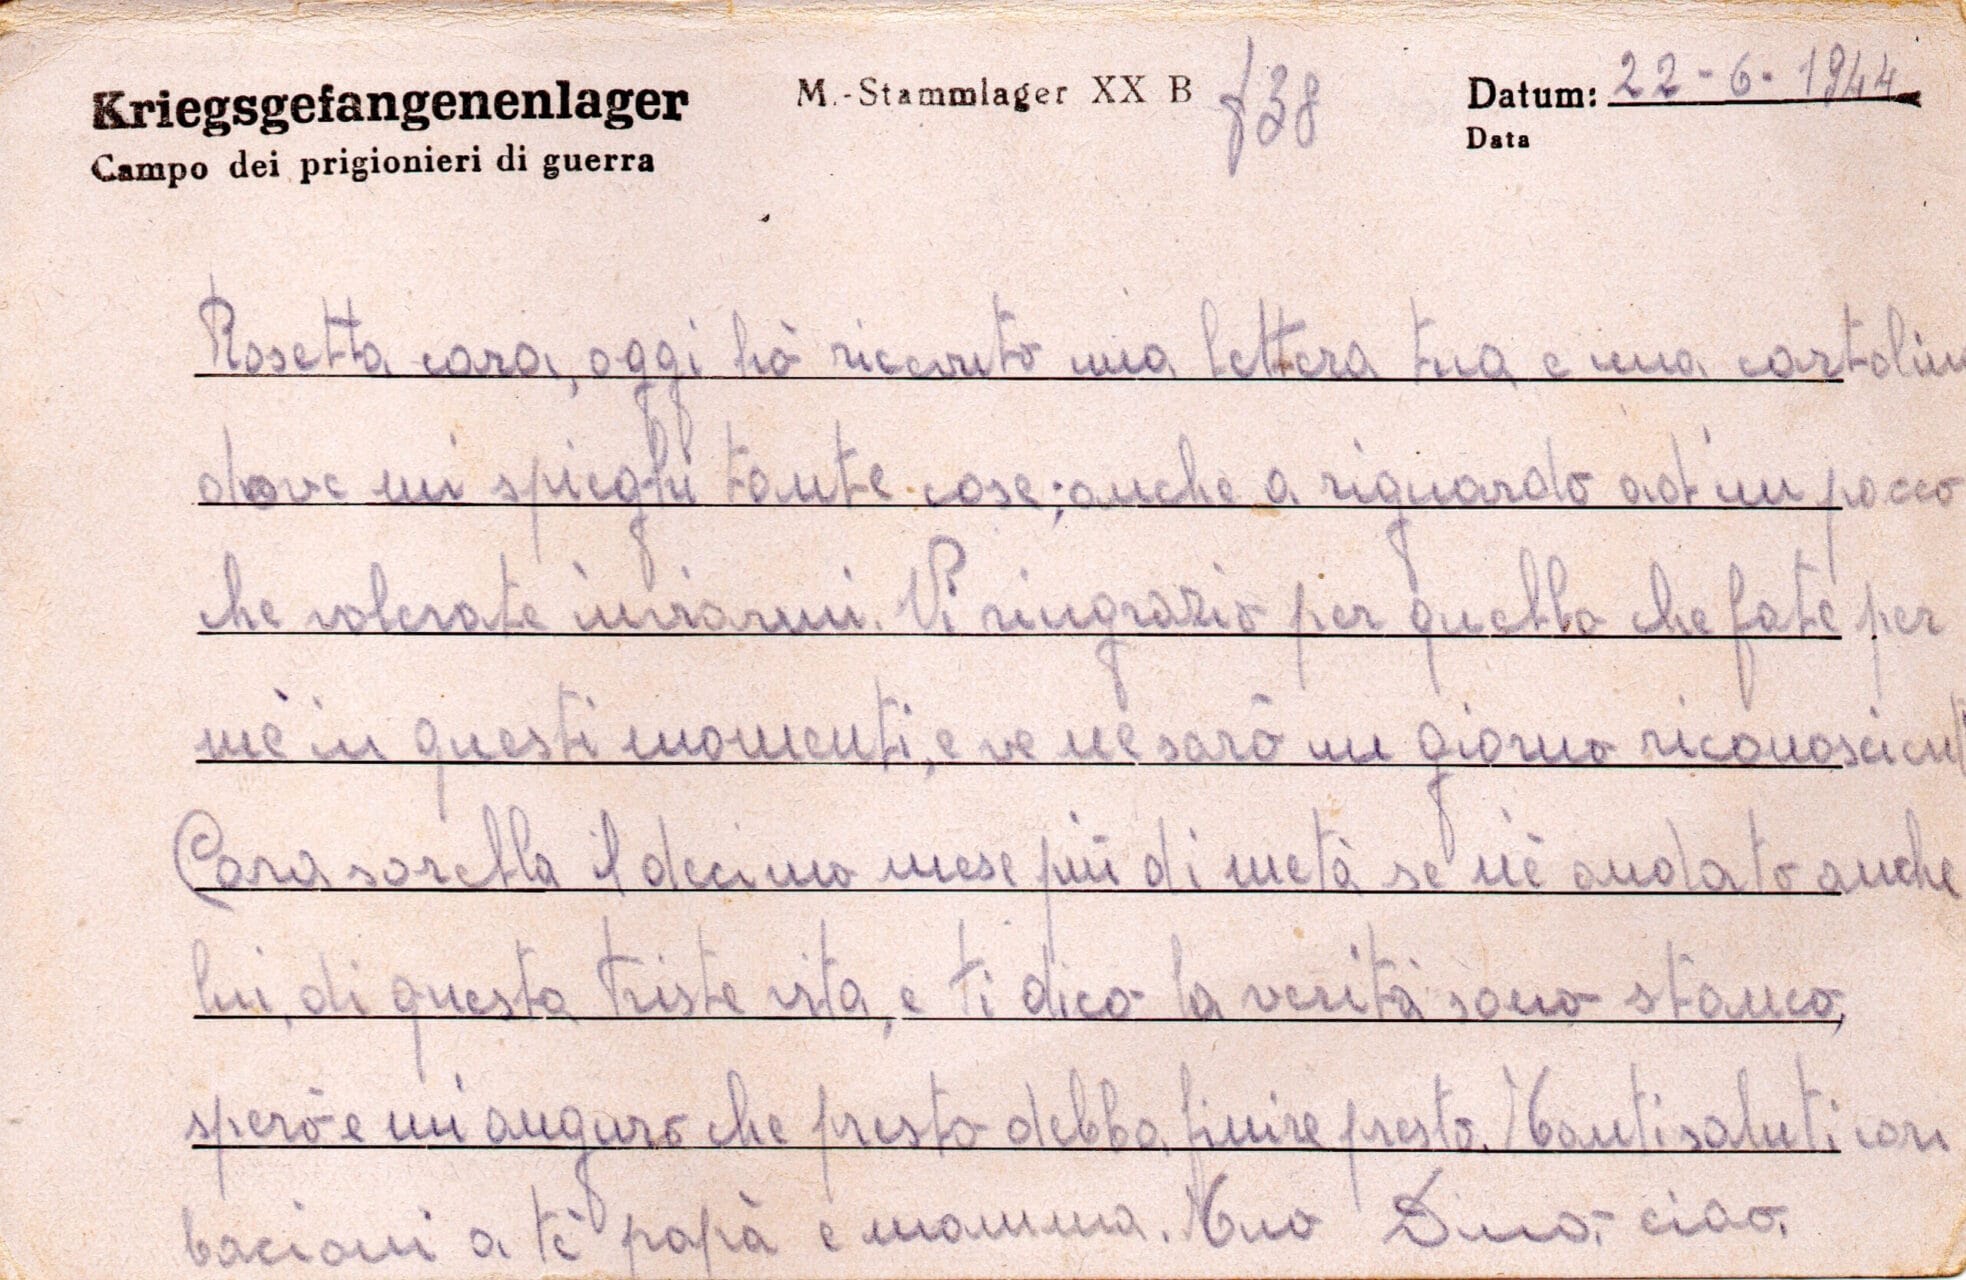 Kriegsgefangenenlager
Campo dei prigionieri di guerra
M.-Stammlager XX B
Datum: 22-6-1944
Data
Rosetta cara, oggi hò ricevuto una lettera tua e una cartolina
dove mi spieghi tante cose; anche a riguardo ad un pacco
che volevate inviarmi. Vi ringrazio per quello che fate per
mè in questi momenti, e ve ne sarò un giorno riconosciut
Cara sorella il decimo mese più di metà se n'è andato anche
lui, di questa triste vita, e ti dico la verità sono stanco,
sperò e mi auguro che presto debba finire presto. Tanti saluti cari
bacioni a tè papà e mamma. Tuo Dino, ciao.